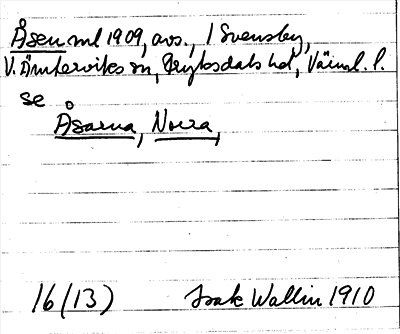 Åsen ml 1909, avs., / Svensby,
V. Ämterviks sn, Fryksdals hd, Värml. l.
se
Åsarna, Norra,
16 (13) Isak Wallin 1910